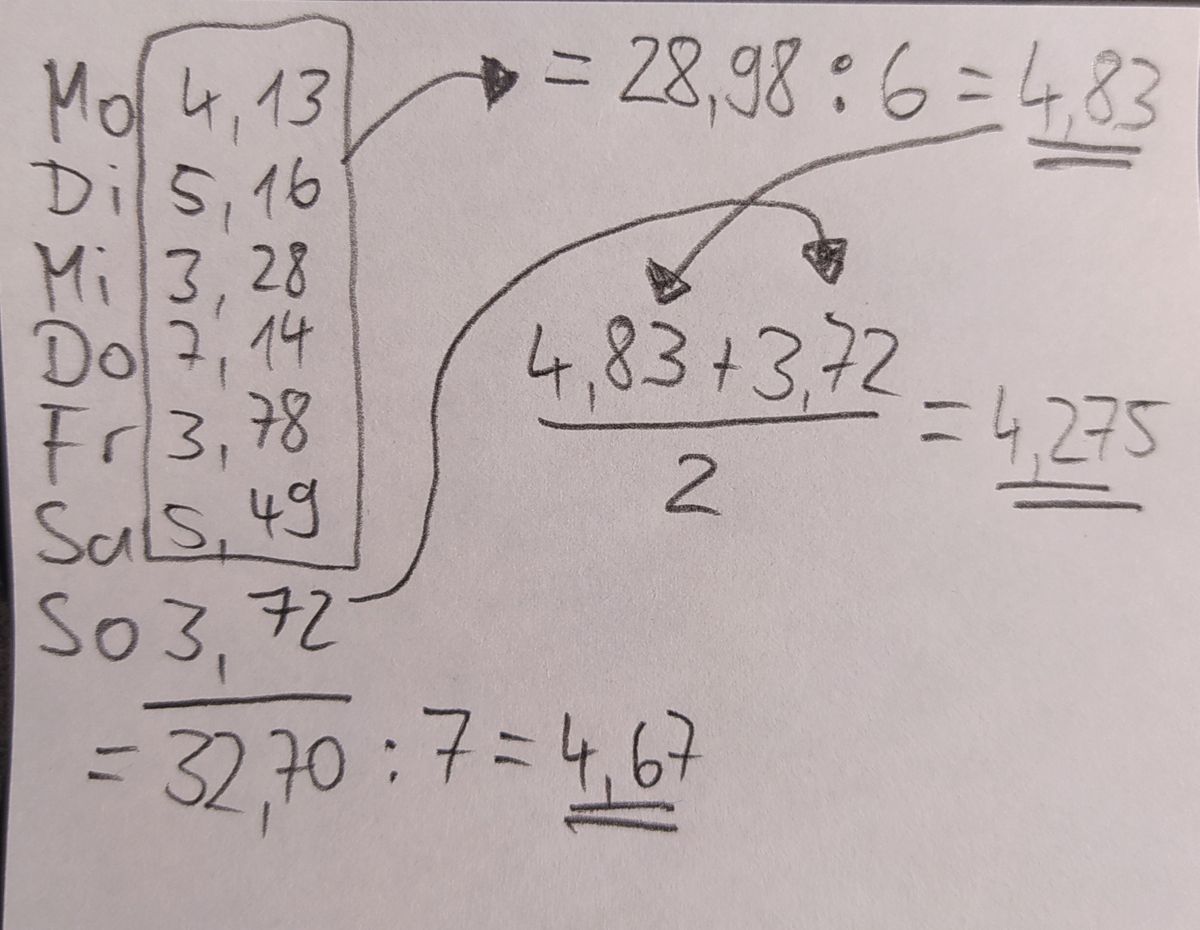 Mo 4,13
= 28,98 : 6 = 4,83
Di 5,16
Mi 3,28
Do 7,14
4,83 + 3,72
Fr 3,78
= 4,275
2
Sa 5,49
So 3,72
= 32,70 : 7 = 4,67